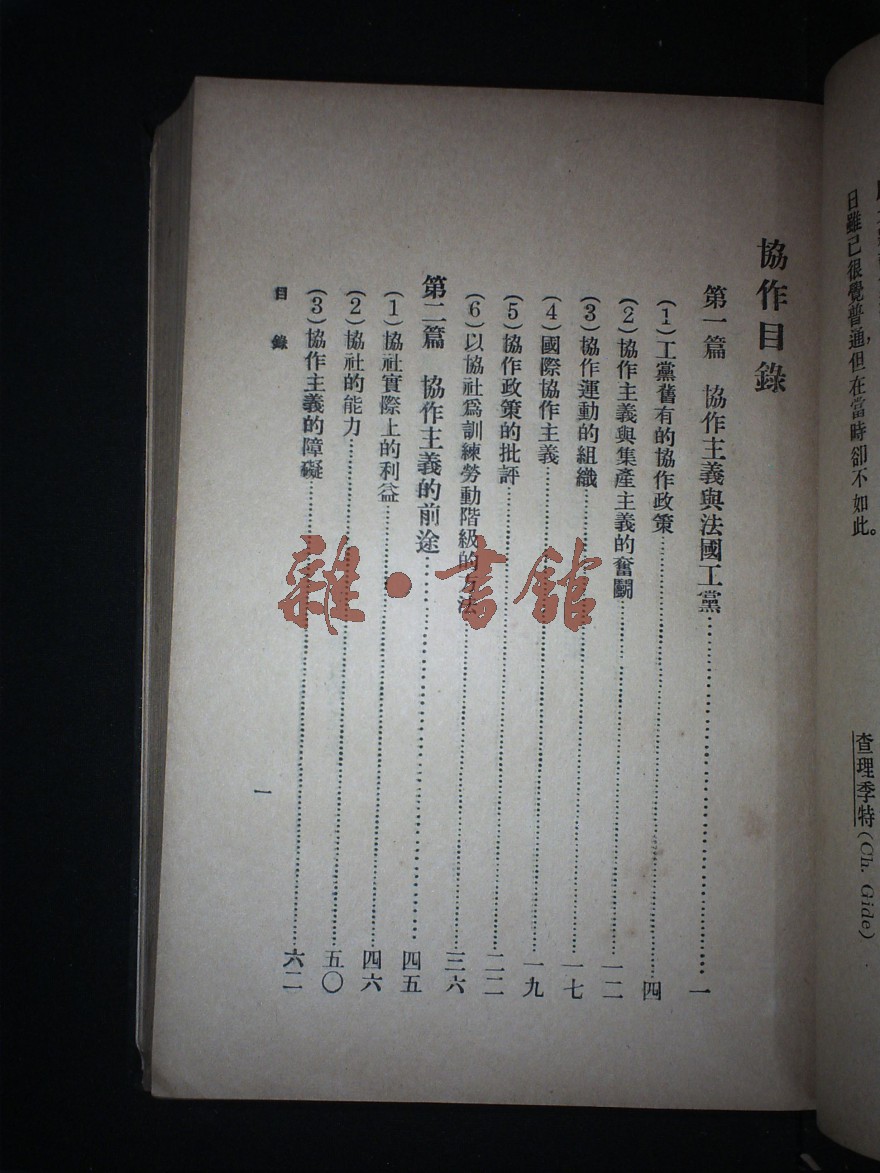 日雖已很覺普通，但在當時卻不如此。
查理季特 (Ch. Gide)
協作目錄
第一篇 協作主義與法國工黨……一
(1)工黨舊有的協作政策……四
(2)協作主義與集產主義的奮鬭……一二
(3)協作運動的組織……一七
(4)國際協作主義……一九
(5)協作政策的批評……二二
(6)以協社爲訓練勞動階級的方法……三六
第二篇 協作主義的前途……四五
(1)協社實際上的利益……四六
(2)協社的能力……五〇
(3)協作主義的障礙……六二
目錄
一
雜·書館